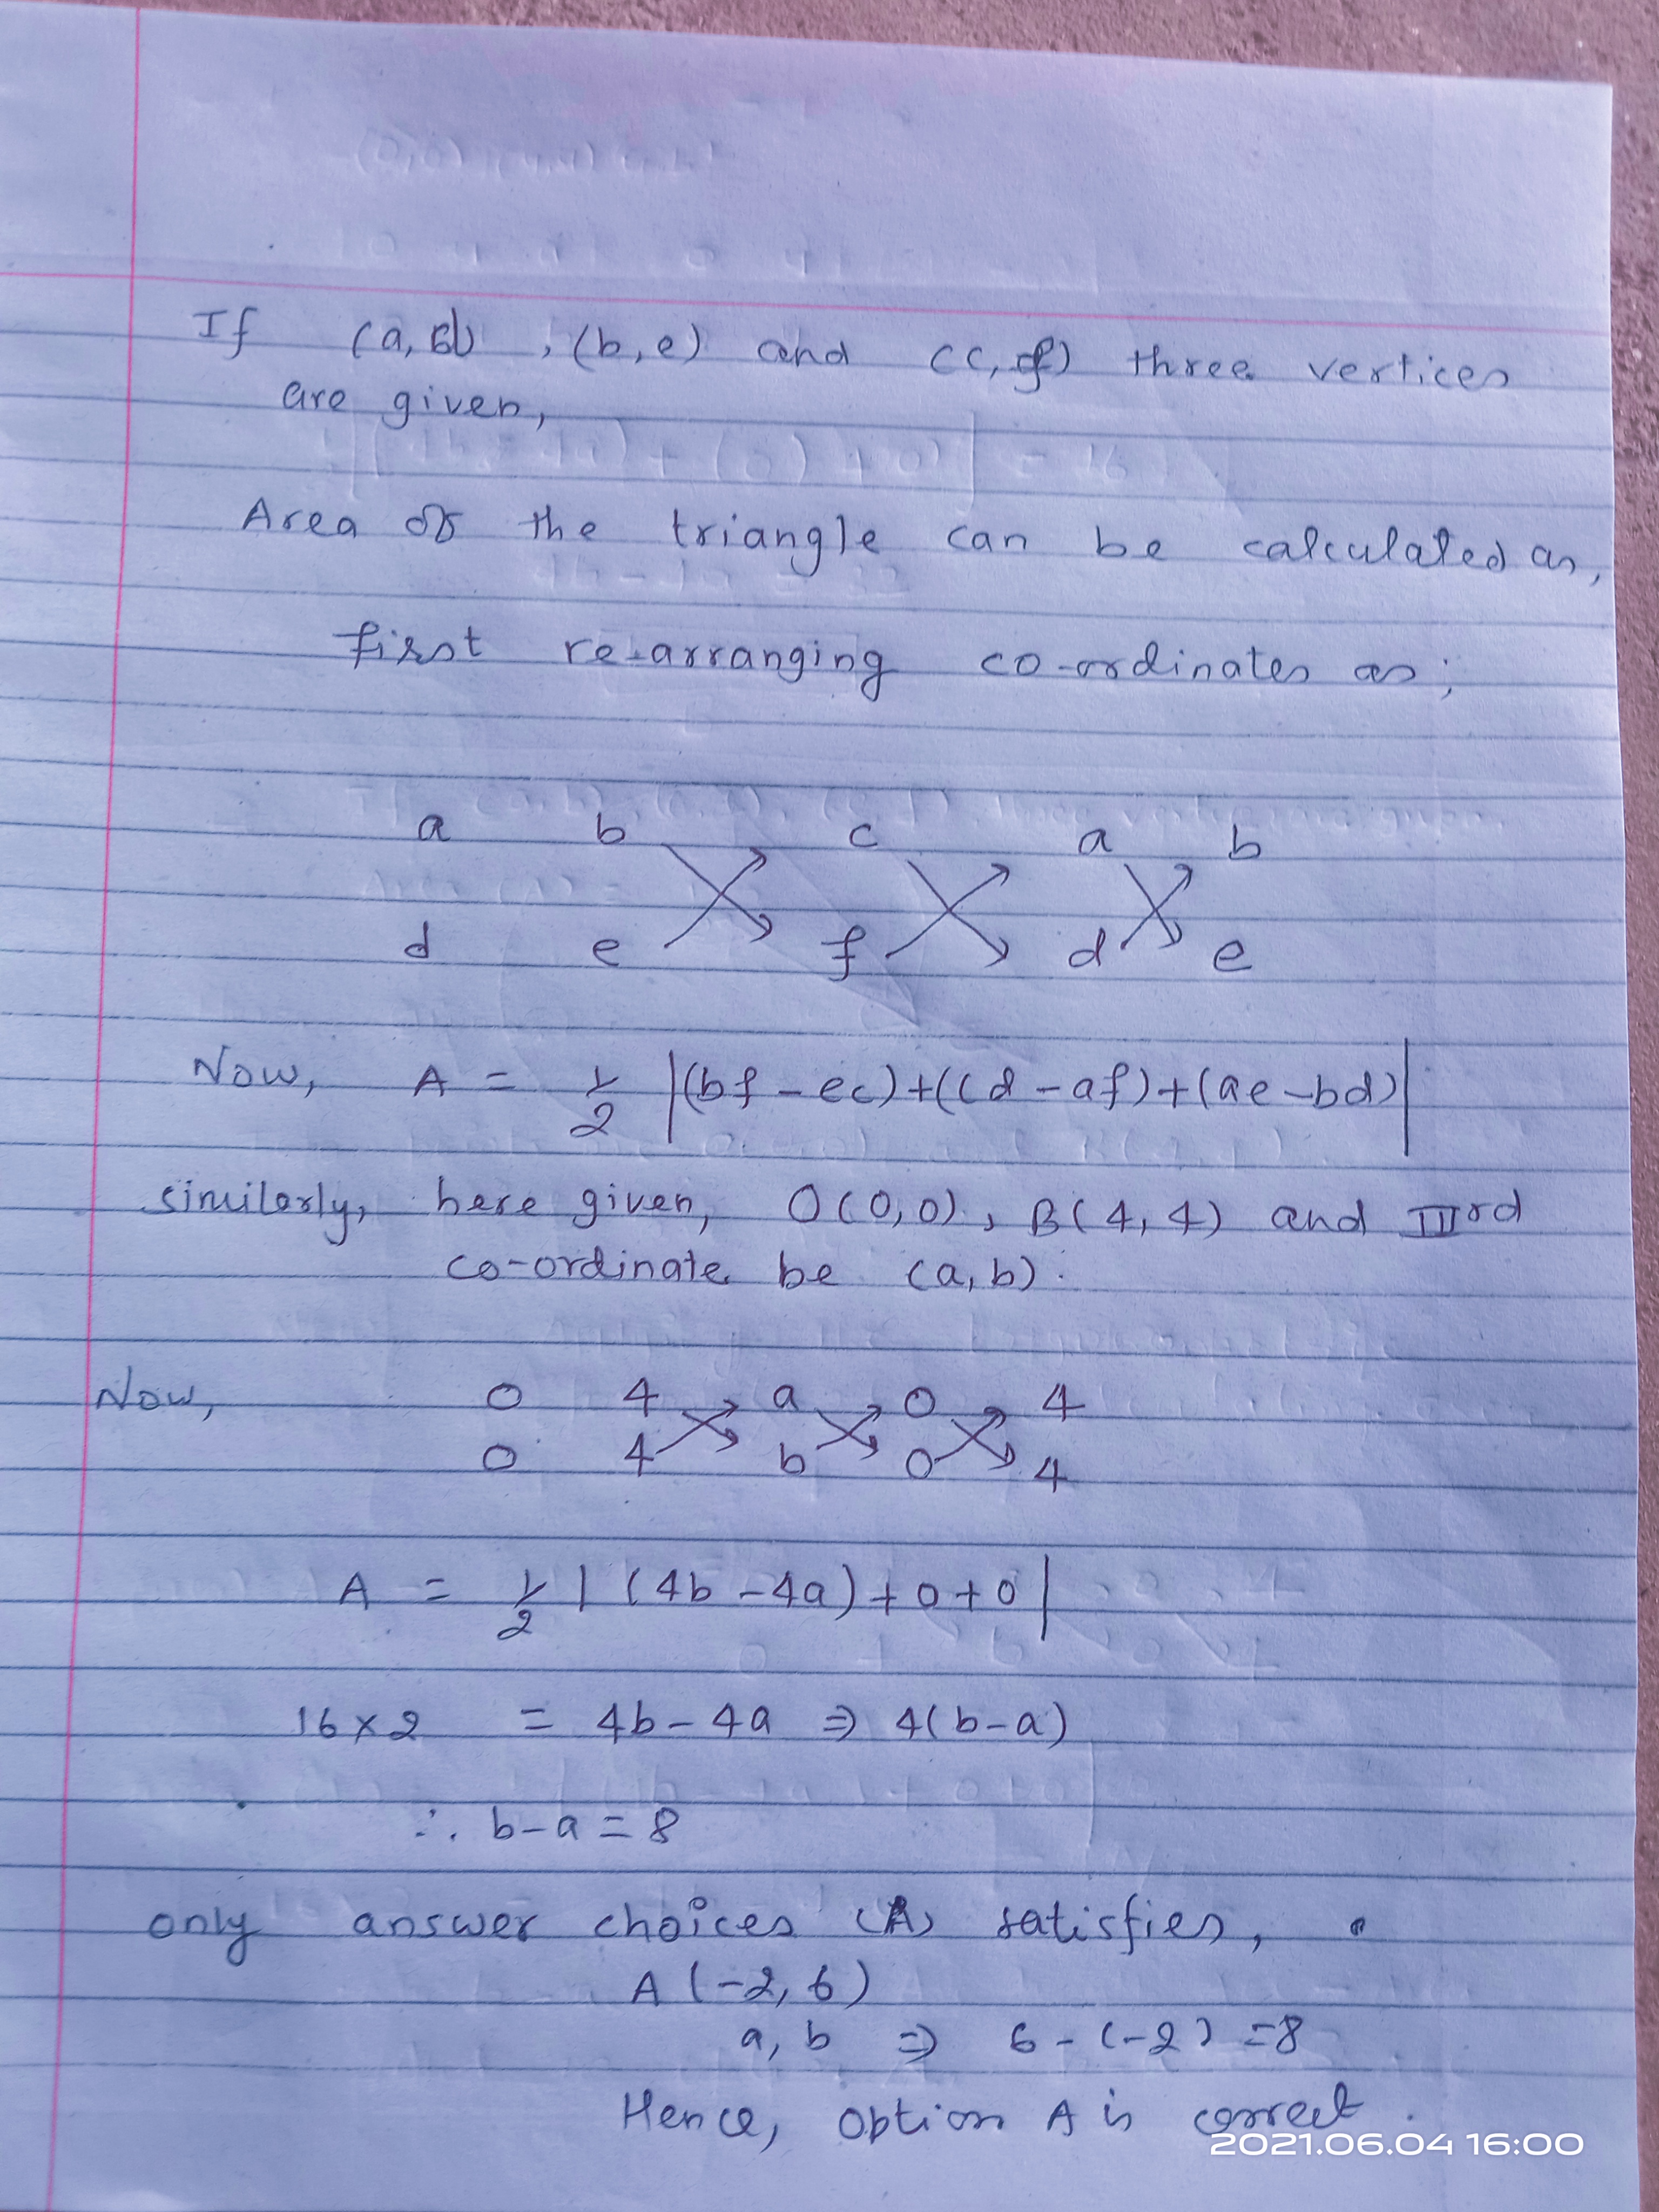 If (a, d) , (b, e) and (c, f) three vertices
are given,
Area of the triangle can be calculated as,
first re-arranging co-ordinates as;
a b c a b
d e f d e
Now, A = 1/2 |(bf - ec)+(cd - af)+(ae-bd)|
similarly, here given, O(0,0), B(4,4) and IIIrd
co-ordinate be (a,b).
Now, 0 4 a 0 4
0 4 b 0 4
A = 1/2 | (4b-4a)+0+0|
16×2 = 4b-4a ⇒ 4(b-a)
∴ b-a=8
only answer choices (A) satisfies,
A(-2, 6)
a, b ⇒ 6-(-2) =8
Hence, option A is correct.
2021.06.04 16:00